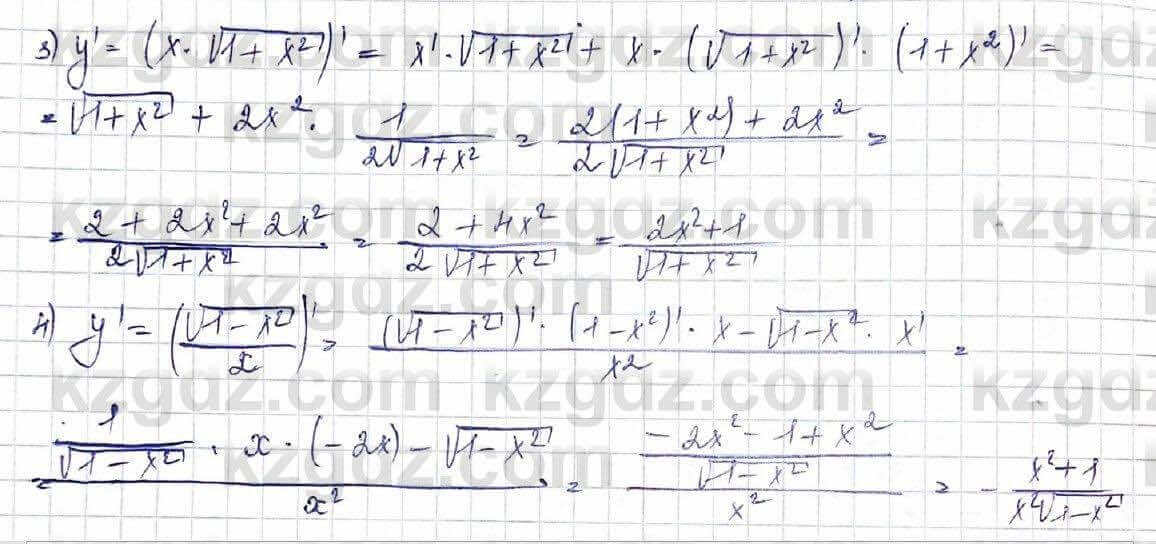 3) y' = (x · √(1 + x²))' = x' · √(1 + x²) + x · (√(1 + x²))' · (1 + x²)' =
= √(1 + x²) + 2x² · 1/(2√(1 + x²)) = (2(1 + x²) + 2x²)/(2√(1 + x²)) =
= (2 + 2x² + 2x²)/(2√(1 + x²)) = (2 + 4x²)/(2√(1 + x²)) = (2x² + 1)/√(1 + x²)
4) y' = (√(1 - x²)/x)' = ((√(1 - x²))' · (1 - x²)' · x - √(1 - x²) · x')/x² =
= (1/√(1 - x²) · x · (-2x) - √(1 - x²))/x² = ((-2x² - 1 + x²)/√(1 - x²))/x² = -(x² + 1)/(x²√(1 - x²))
kzgdz.com